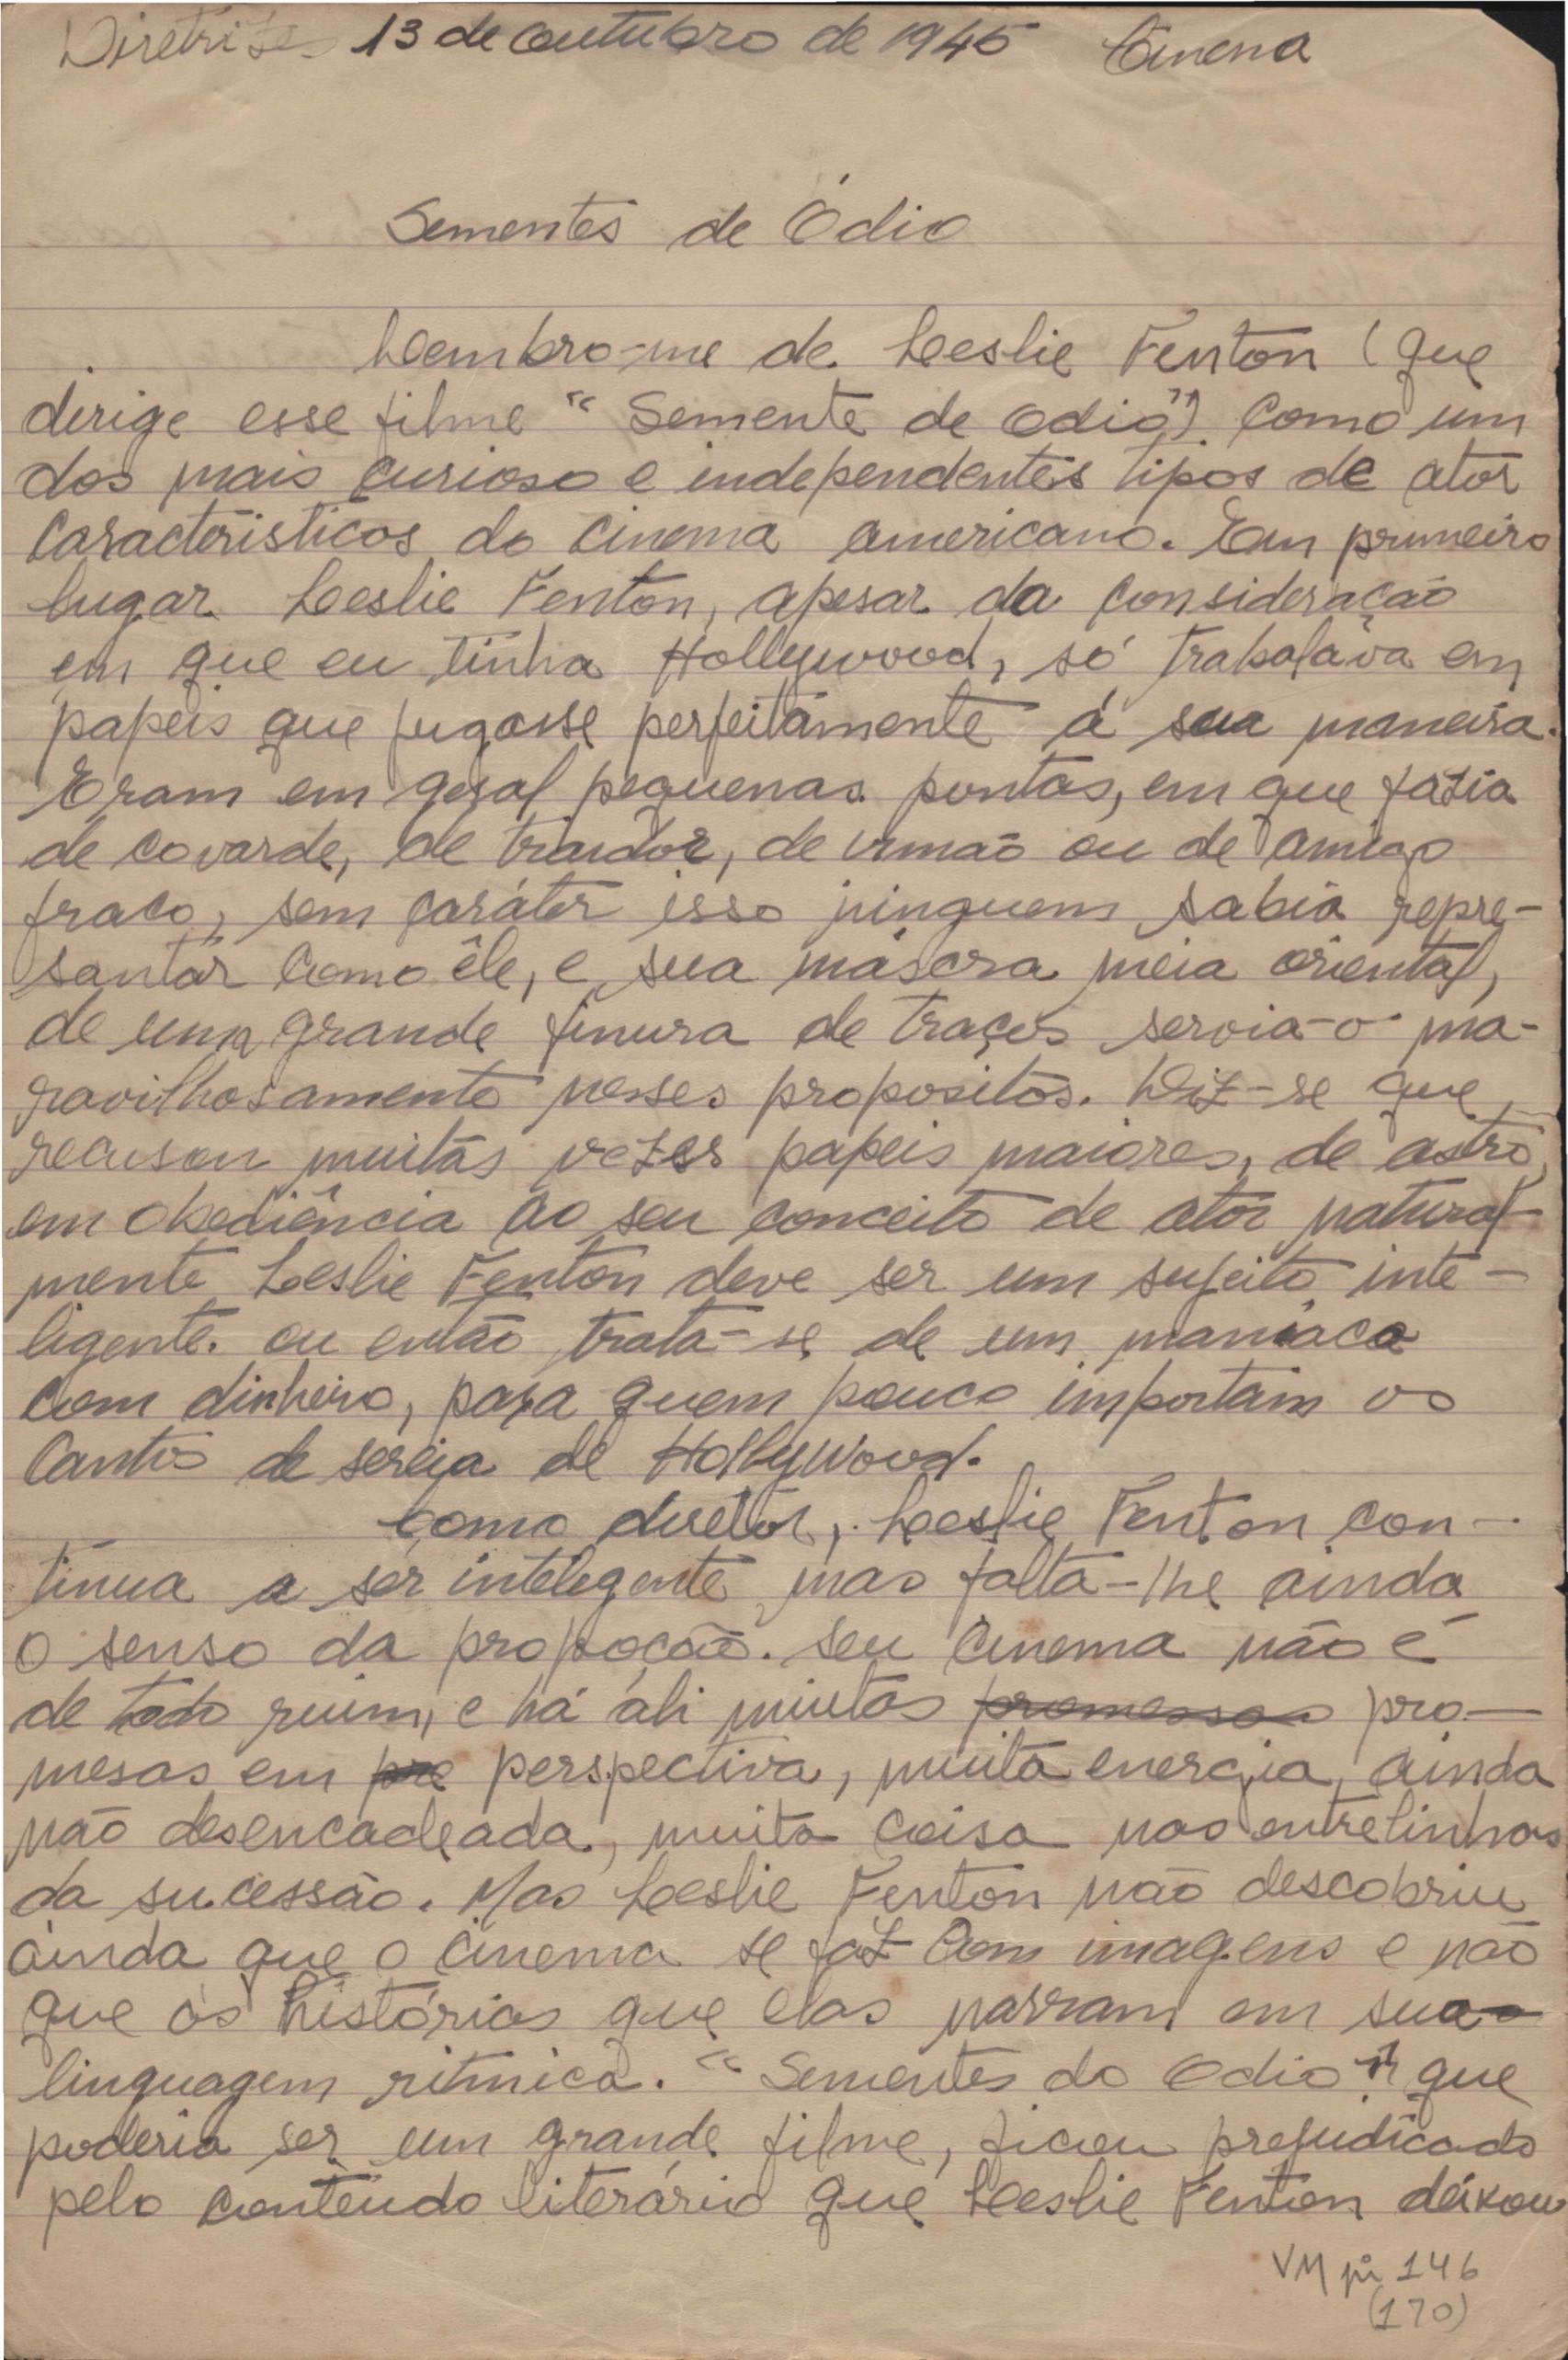 Diretrizes 13 de outubro de 1945 Cinema
Sementes de Ódio
Lembro-me de Leslie Fenton (que
dirige esse filme "Semente de odio") como um
dos mais curioso e independentes tipos de ator
caracteristicos do cinema americano. Em primeiro
lugar Leslie Fenton, apesar da consideração
em que eu tinha Hollywood, só trabalava em
papeis que jugasse perfeitamente á sua maneira.
Eram em geral pequenas pontas, em que fazia
de covarde, de traidor, de irmão ou de amigo
fraco, sem caráter isso ninguem sabia repre-
santar como êle, e sua máscra meia oriental,
de uma grande finura de traços servia-o ma-
ravilhosamente nesses propositos. Diz-se que
recusou muitas vezes papeis maiores, de astro,
em obediência ao seu conceito de ator natural-
mente Leslie Fenton deve ser um sujeito inte-
ligente. ou então trata-se de um maníaco
com dinheiro, para quem pouco importam os
cantos de sereia de Hollywood.
Como diretor, Leslie Fenton con-
tinua a ser intelegente mas falta-lhe ainda
o senso da propoção. seu cinema não é
de todo ruim, e há ali muitas promessas pro-
mesas em pre perspectiva, muita energia, ainda
não desencadeada, muita coisa nas entrelinhas
da sucessão. Mas Leslie Fenton não descobriu
ainda que o cinema se faz com imagens e não
que as histórias que elas narram em sua
linguagem ritmica. "Sementes do Odio" que
poderia ser um grande filme, ficou prejudicado
pelo conteúdo literário que Leslie Fenton deixou
VM pi 146
(170)